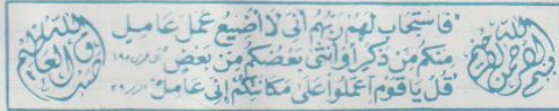 بسم الله الرحمن الرحيم
"فَاسْتَجَابَ لَهُمْ رَبُّهُمْ أَنِّي لَا أُضِيعُ عَمَلَ عَامِلٍ
مِنْكُمْ مِنْ ذَكَرٍ أَوْ أُنْثَى بَعْضُكُمْ مِنْ بَعْضٍ"
"قُلْ يَا قَوْمِ اعْمَلُوا عَلَى مَكَانَتِكُمْ إِنِّي عَامِلٌ"
صدق الله العظيم